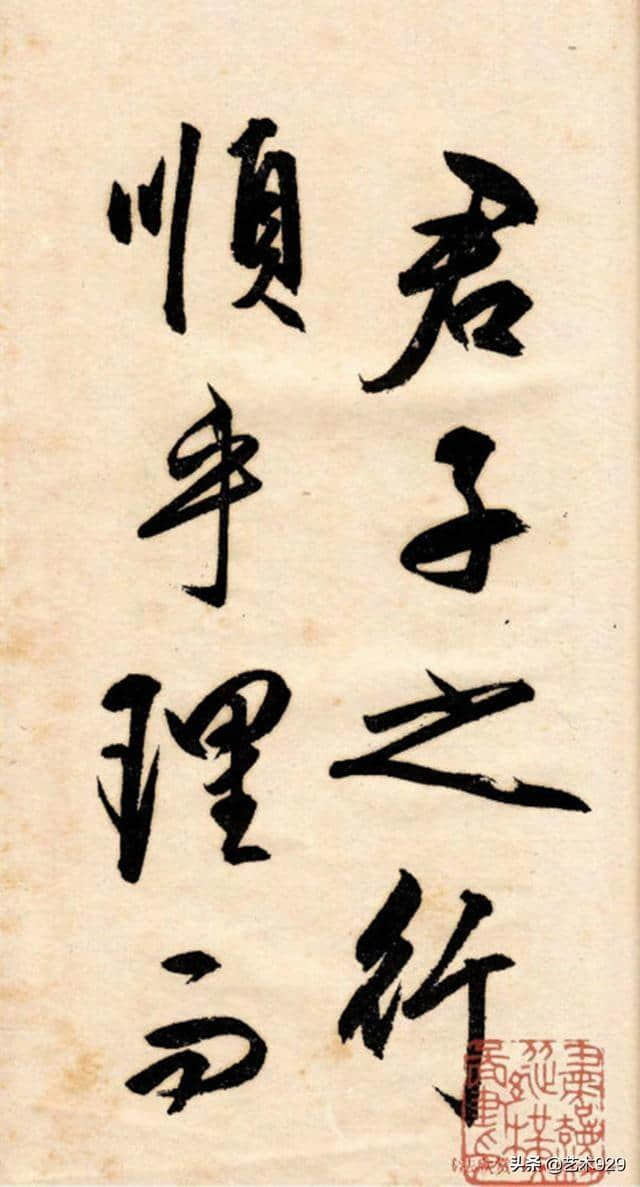 君子之行
順乎理而
头条 @艺术929